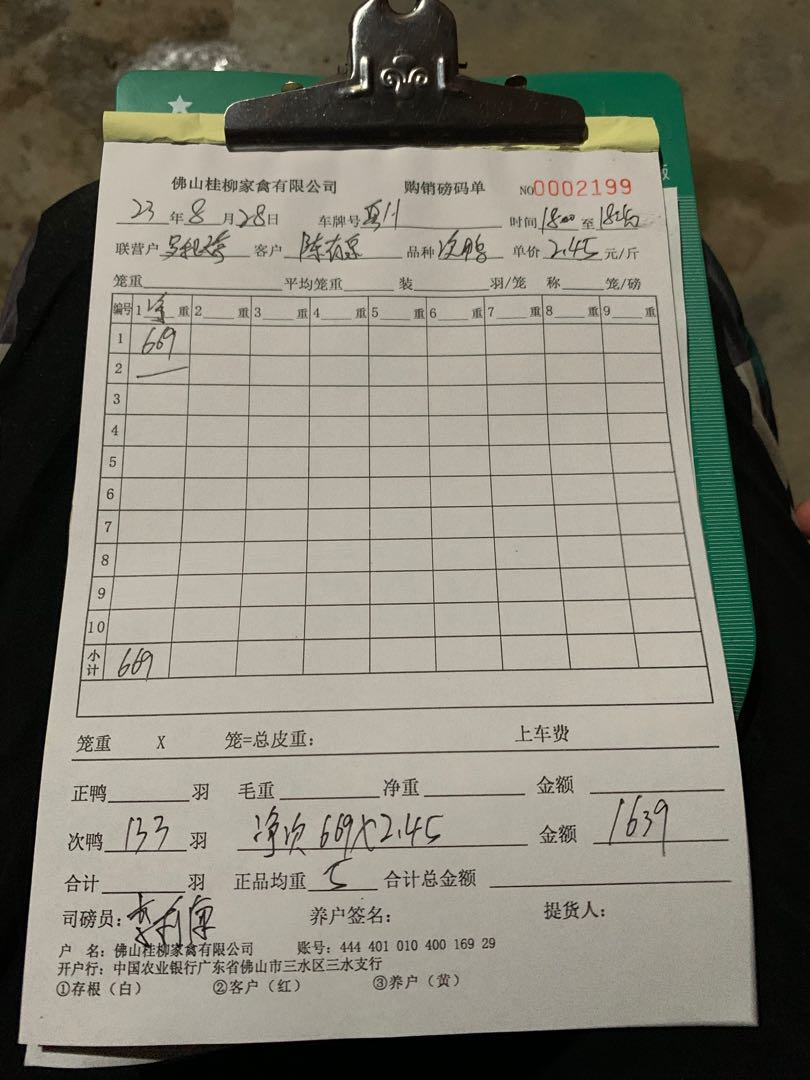 佛山桂柳家禽有限公司 购销磅码单 NO0002199
23年8月28日 车牌号 时间18:00至
联营户 客户 品种次鸭 单价2.45元/斤
笼重 平均笼重 装 羽/笼 称 笼/磅
编号 1净重 2重 3重 4重 5重 6重 7重 8重 9重
1 669
2 —
3
4
5
6
7
8
9
10
小计 669
笼重 X 笼=总皮重： 上车费
正鸭 羽 毛重 净重 金额
次鸭133羽 净次 669X2.45 金额 1639
合计 羽 正品均重 5 合计总金额
司磅员： 养户签名： 提货人：
户 名：佛山桂柳家禽有限公司 账号：444 401 010 400 169 29
开户行：中国农业银行广东省佛山市三水区三水支行
①存根（白） ②客户（红） ③养户（黄）